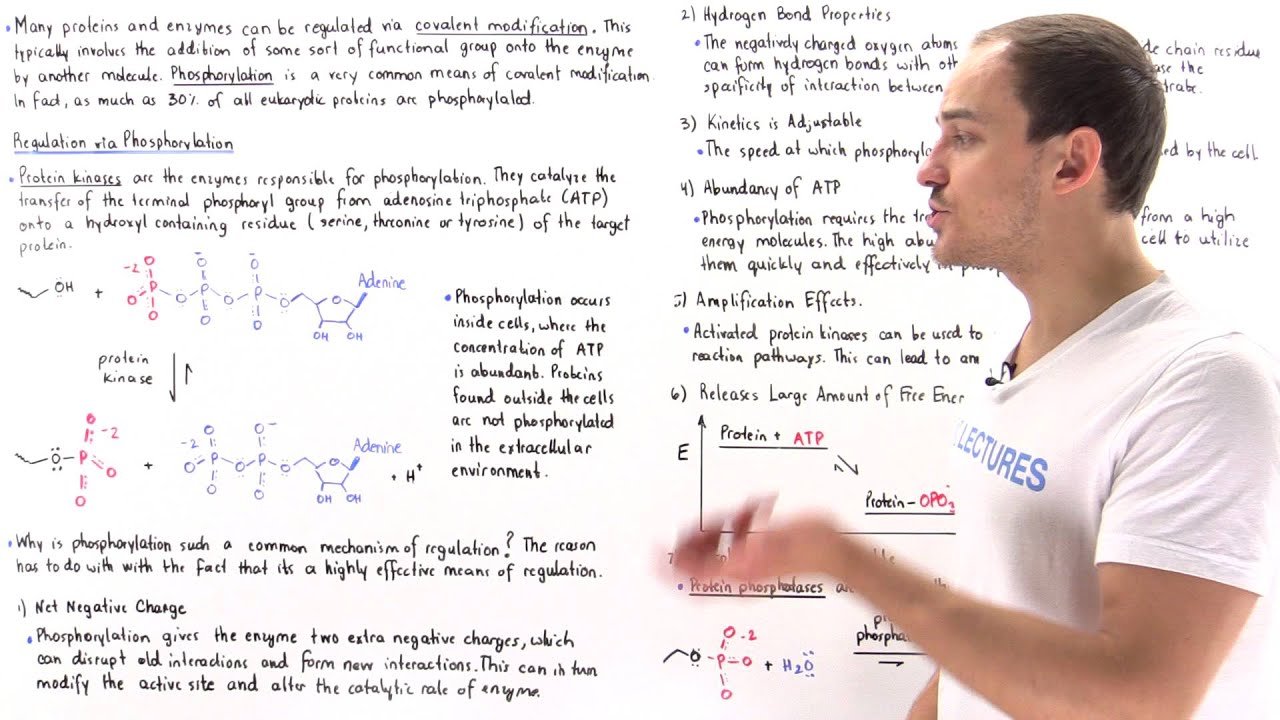 • Many proteins and enzymes can be regulated via covalent modification. This
typically involves the addition of some sort of functional group onto the enzyme
by another molecule. Phosphorylation is a very common means of covalent modification.
In fact, as much as 30% of all eukaryotic proteins are phosphorylated.
Regulation via Phosphorylation
• Protein kinases are the enzymes responsible for phosphorylation. They catalyze the
transfer of the terminal phosphoryl group from adenosine triphosphate (ATP)
onto a hydroxyl containing residue (serine, threonine or tyrosine) of the target
protein.
OH + -2 O P O O O P O O O P O O Adenine
OH OH
protein
kinase
O P O O O -2 + -2 O P O O O P O O- O Adenine
OH OH
+ H+
• Phosphorylation occurs
inside cells, where the
concentration of ATP
is abundant. Proteins
found outside the cells
are not phosphorylated
in the extracellular
environment.
• Why is phosphorylation such a common mechanism of regulation? The reason
has to do with with the fact that its a highly effective means of regulation.
1) Net Negative Charge
• Phosphorylation gives the enzyme two extra negative charges, which
can disrupt old interactions and form new interactions. This can in turn
modify the active site and alter the catalytic rate of enzyme.
2) Hydrogen Bond Properties
• The negatively charged oxygen atoms chain residue
can form hydrogen bonds with the
specificity of interaction between
3) Kinetics is Adjustable
• The speed at which by the cell
4) Abundancy of ATP
• Phosphorylation requires the from a high
energy molecules. The high cell to utilize
them quickly and effectively
5) Amplification Effects.
• Activated protein kinases can be used to
reaction pathways. This can lead to
6) Releases Large Amount of Free
E
Protein + ATP
Protein-OPO3
7)
• Protein phosphatases
O P O O O -2 + H2O
LECTURES